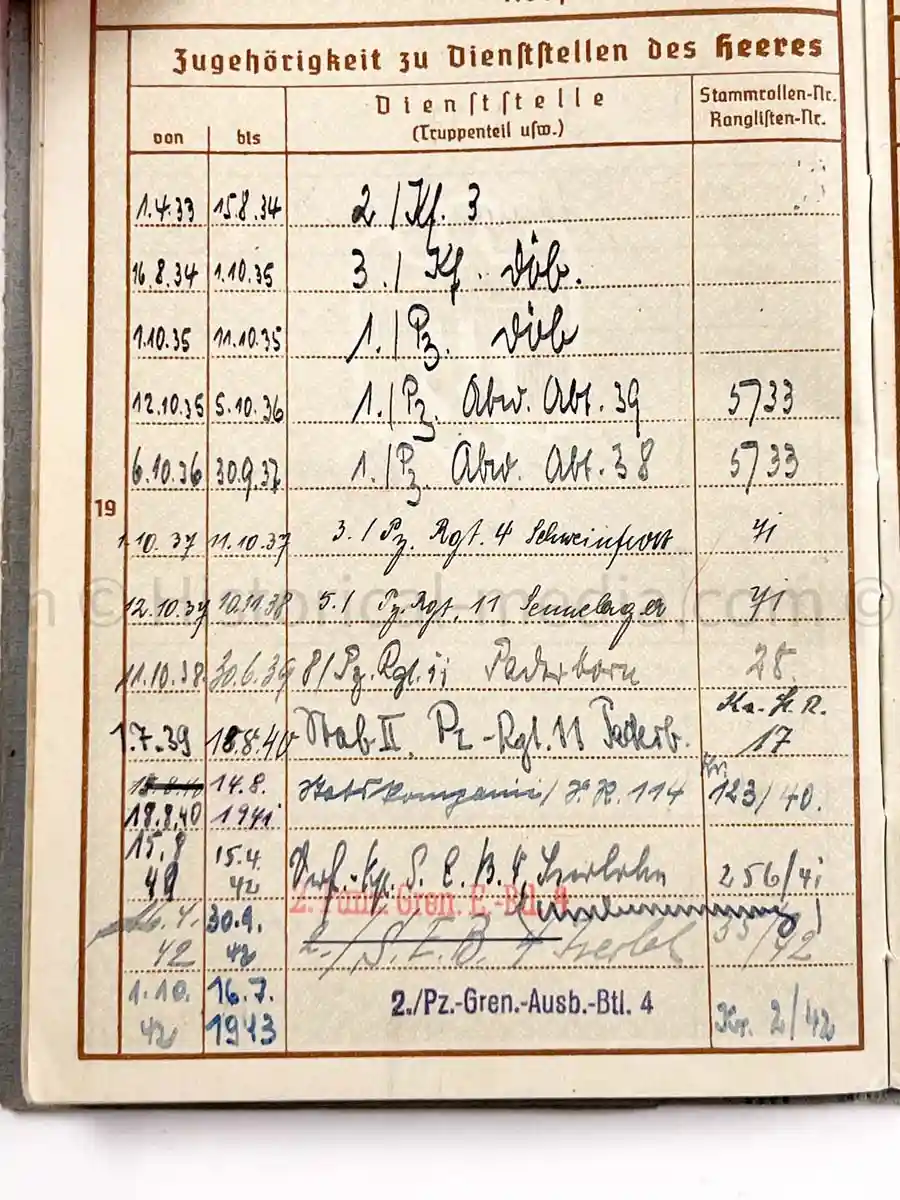 Zugehörigkeit zu Dienststellen des Heeres
von bis Dienststelle (Truppenteil usw.) Stammrollen-Nr. Ranglisten-Nr.
1.4.33 15.8.34 2./Kf. 3
16.8.34 1.10.35 3./Kf. Döb.
1.10.35 11.10.35 1./Pz. Döb
12.10.35 5.10.36 1./Pz. Abw. Abt. 39 5733
6.10.36 30.9.37 1./Pz. Abw. Abt. 38 5733
19
1.10.37 11.10.37 3./Pz. Rgt. 4 Schweinfurt 71
12.10.37 10.11.38 5./Pz. Rgt. 11 Sennelager 71
© Historical-media.com ©
11.10.38. 30.6.39 8/Pz. Rgt. 11 Paderborn 28.
1.7.39 18.8.40 Stab II. Pz-Rgt. 11 Paderb. 17
15.8.40 14.8. Stabskompanie/ 114 123/40.
18.8.40 1941
15.8 15.4. S. E. B. 4 Iserlohn 256/41
41 42
2. Funk. Gren. E.-Btl. 4
30.9. 2./S.E.B. 4 35/42
42 42
1.10. 16.7. 2./Pz.-Gren.-Ausb.-Btl. 4 Kr. 2/42
42 1943